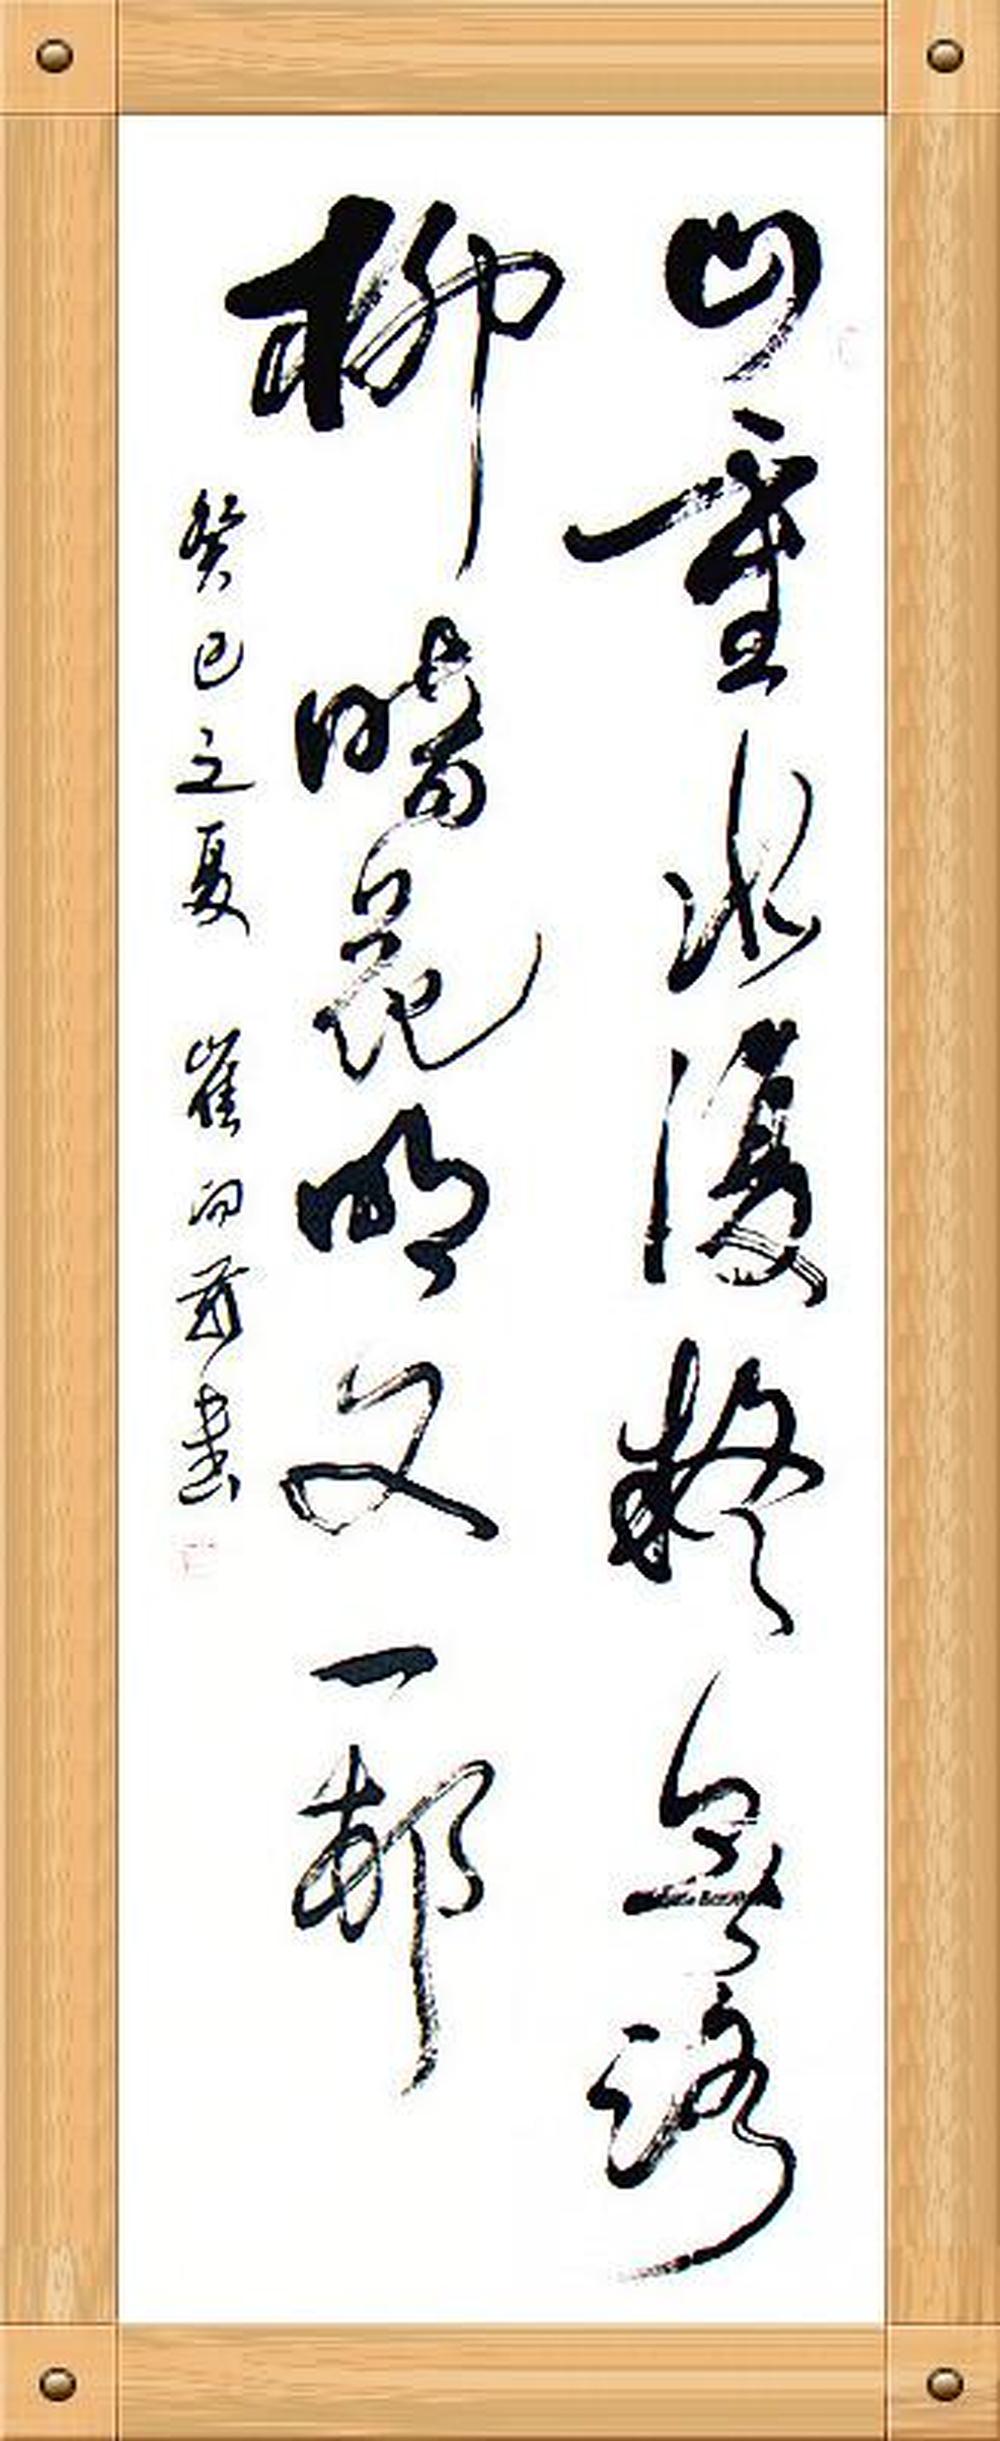 山重水復疑無路
柳暗花明又一邨
癸巳立夏 崔向前書